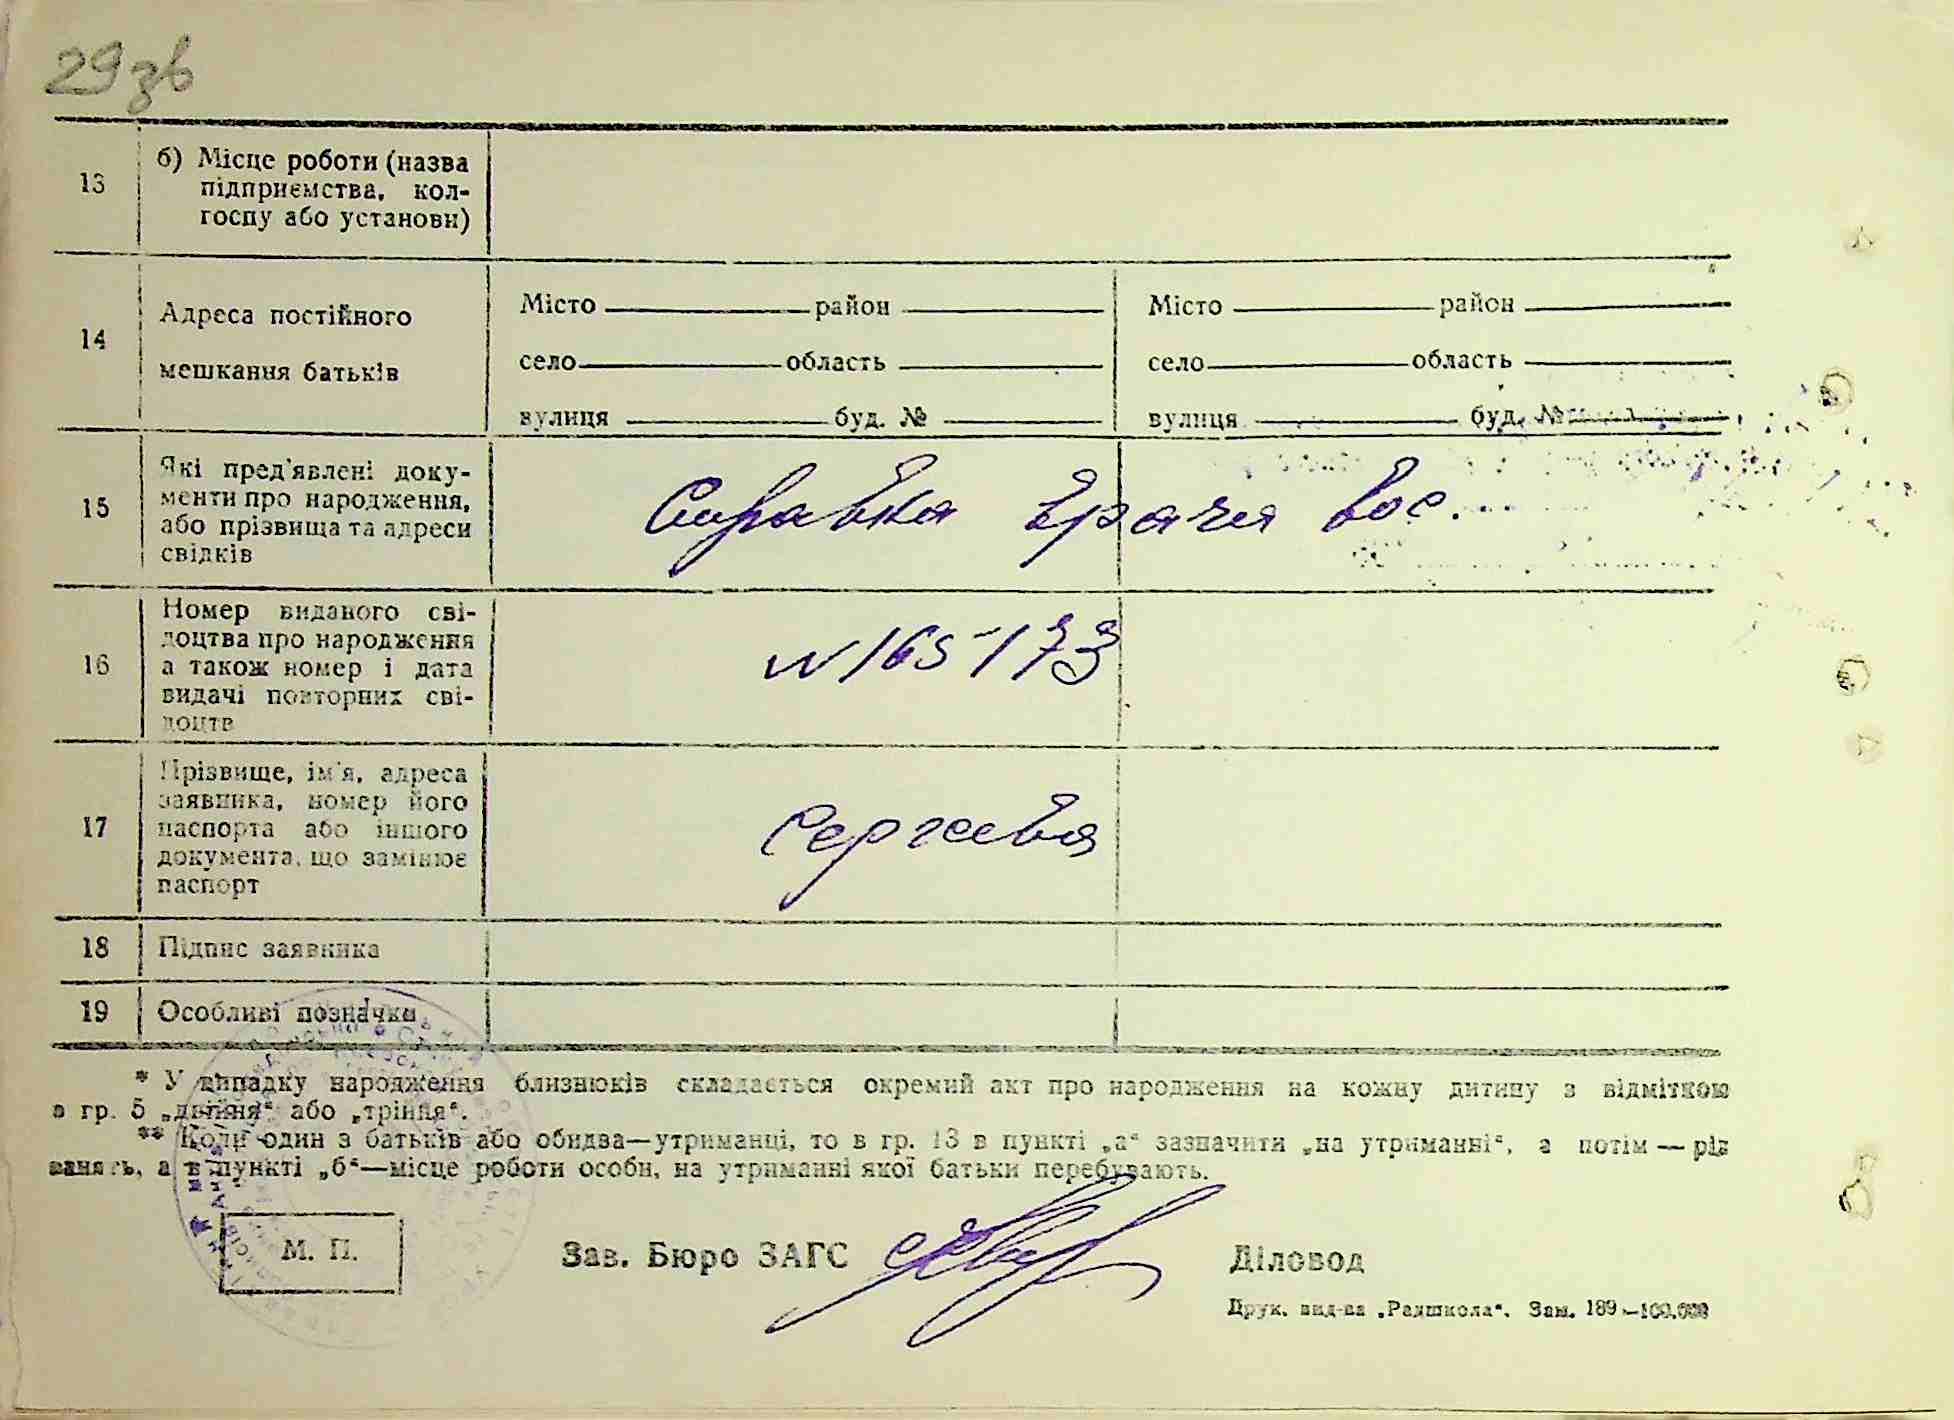 29 зв
13
б) Місце роботи (назва
підприємства, кол-
госпу або установи)
14
Адреса постійного
мешкання батьків
Місто район
село область
вулиця буд. №
Місто район
село область
вулиця буд. №
15
Які пред'явлені доку-
менти про народження,
або прізвища та адреси
свідків
Справка врача вос.
16
Номер виданого сві-
доцтва про народження
а також номер і дата
видачі повторних сві-
доцтв
N 165-173
17
Прізвище, ім'я, адреса
заявника, номер його
паспорта або іншого
документа, що замінює
паспорт
Сергеева
18
Підпис заявника
19
Особливі позначки
* У випадку народження близнюків складається окремий акт про народження на кожну дитину з відміткою
в гр. 5 „двійня“ або „трійня“.
** Коли один з батьків або обидва—утриманці, то в гр. 13 в пункті „а“ зазначити „на утриманні“, а потім —
а в пункті „б“—місце роботи особи, на утриманні якої батьки перебувають.
М. П.
Зав. Бюро ЗАГС
Діловод
Друк. вид-ва „Радшкола“. Зам. 189 —100.000